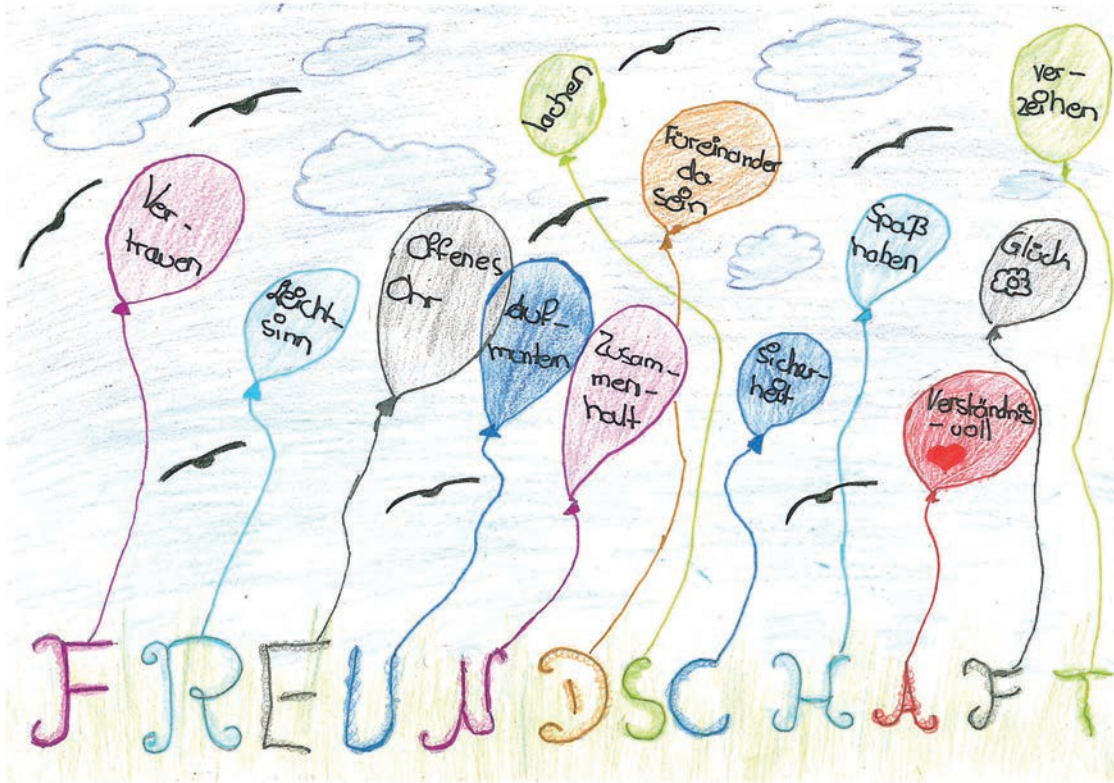 Ver-
trauen
Leicht-
sinn
Offenes
Ohr
Auf-
muntern
lachen
Zusam-
men-
halt
Füreinander
da
sein
Sicher-
heit
Spaß
haben
Verständnis
-voll
Glück
ver-
zeihen
FREUNDSCHAFT